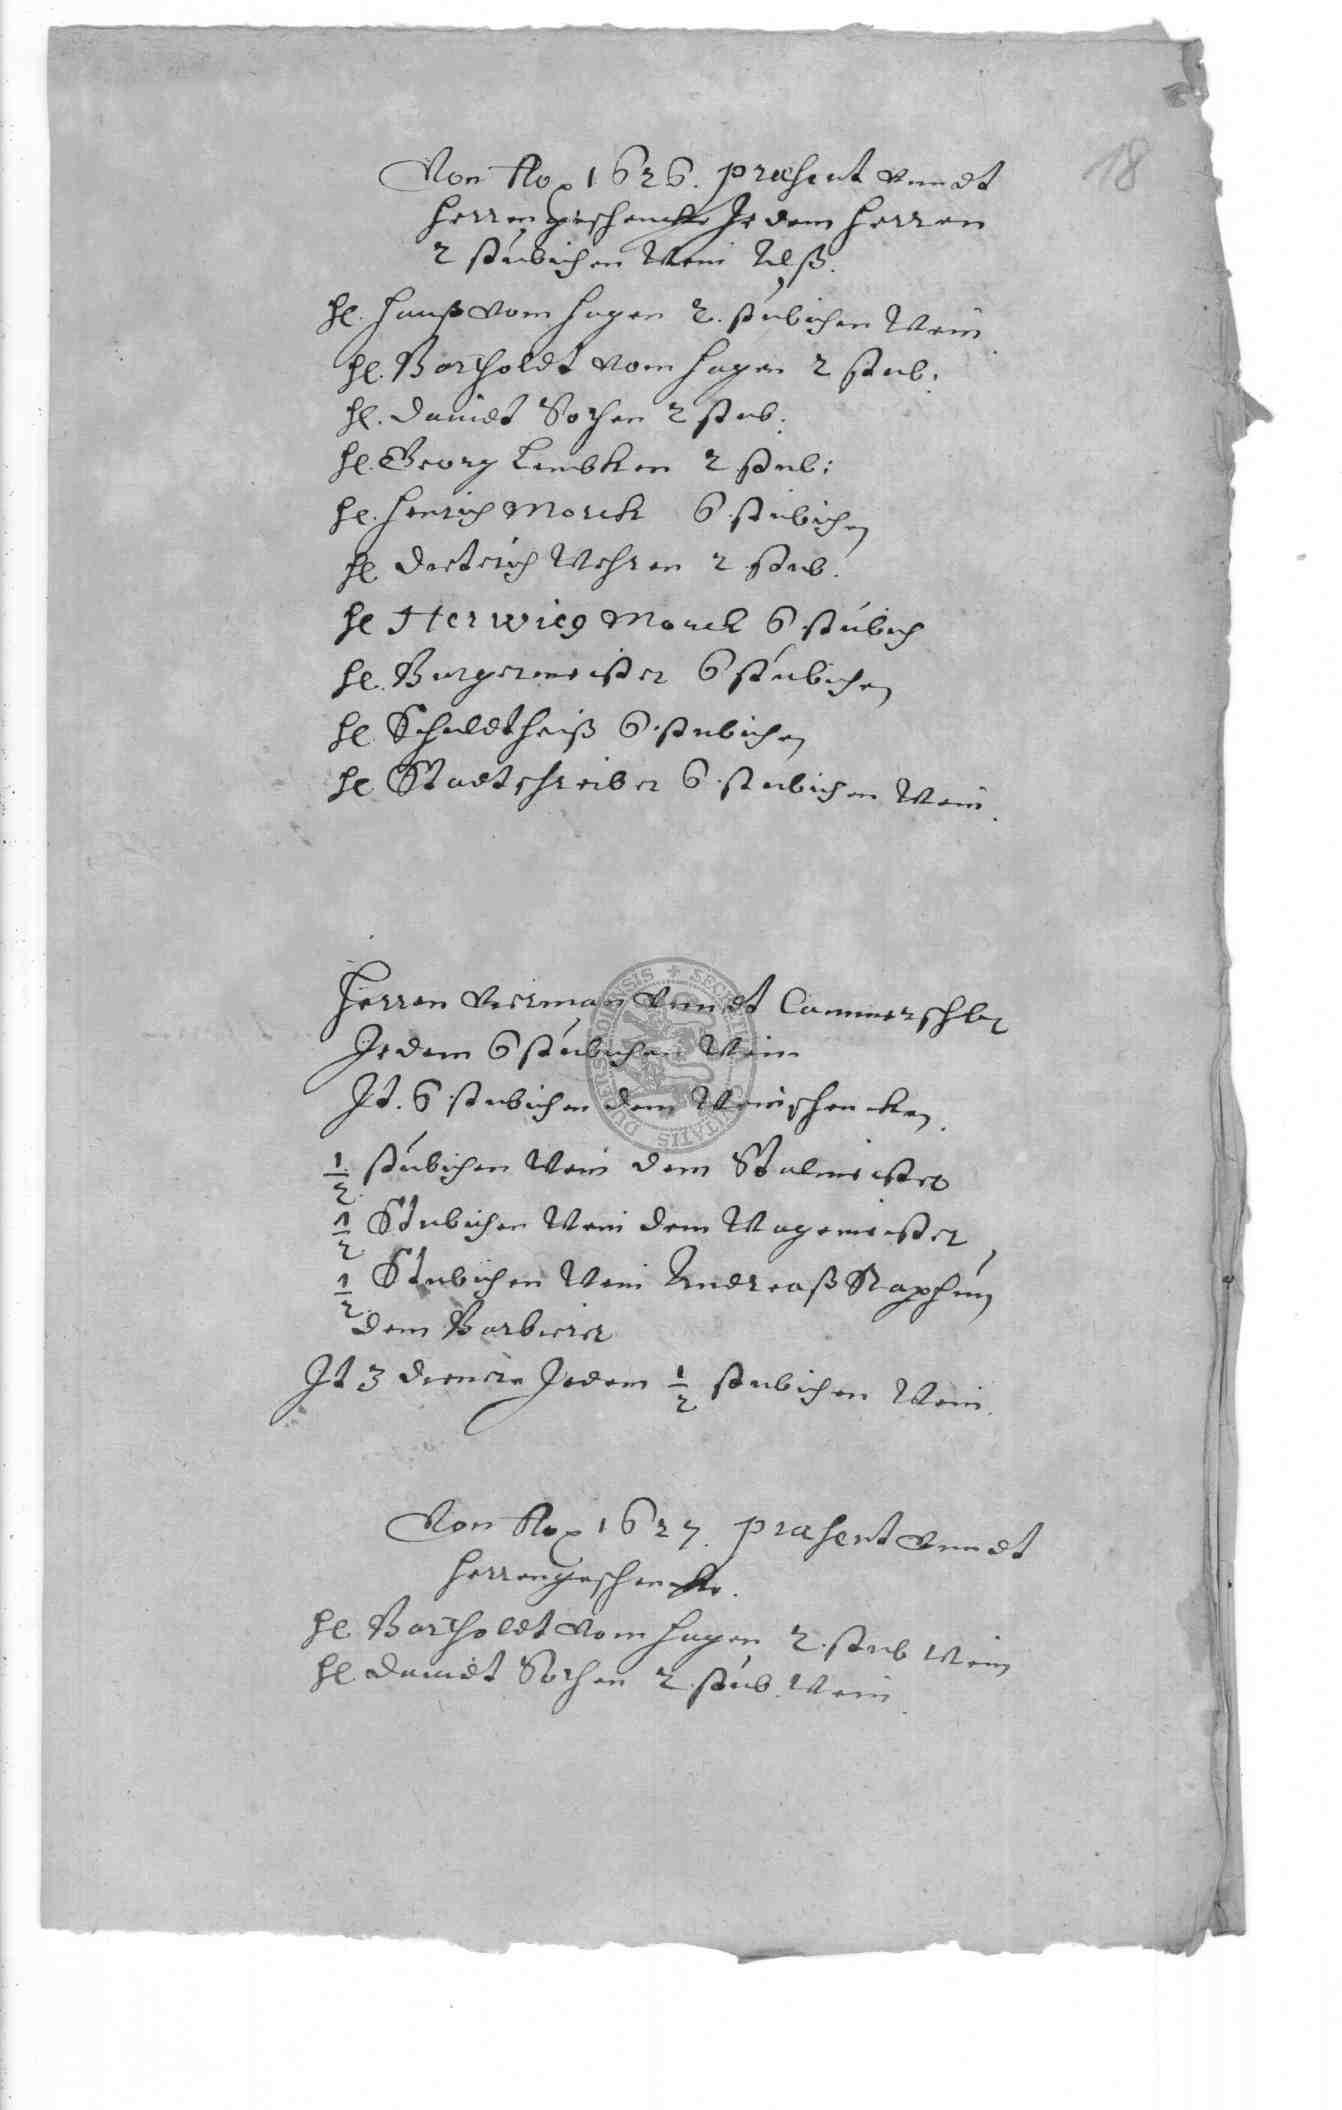 18
Von Ao 1626. præsent vnndt
Herrengeschencke Jedem Herren
2 stübichen Wein Alß.
H. Hanß vom Hagen 2. stübichen Wein
H. Bartholdt vom Hagen 2 stub:
H. Dauidt Sothen 2 stub:
H. Georg Lembken 2 stub:
H. Henrich Morck 6 stübichen
H. Dieterich Wehren 2 stub.
H. Herwieg Morck 6 stübich
H. Burgermeister 6 stübichen
H. Schuldtheiß 6 stubichen
H. Stadtschreiber 6 stubichen Wein.
Herren Vierman vnndt Cammerschbr
Jedem 6 stübichen Wein
Jt. 6 stubichen dem Weinschencken.
1/2 stübichen Wein dem Stalmeister
1/2 Stubichen Wein dem Wagemeister,
1/2 Stubichen Wein Andreaß Raphun
dem Barbierer
Jt 3 dienern Jedem 1/2 stubichen Wein.
Von Ao 1627. præsent vnndt
Herrengeschencke.
H. Bartholdt vom Hagen 2 stub Wein
H. Dauidt Sothen 2 stüb. Wein.
SECRETUM CIVITATIS DUDERSTODENSIS